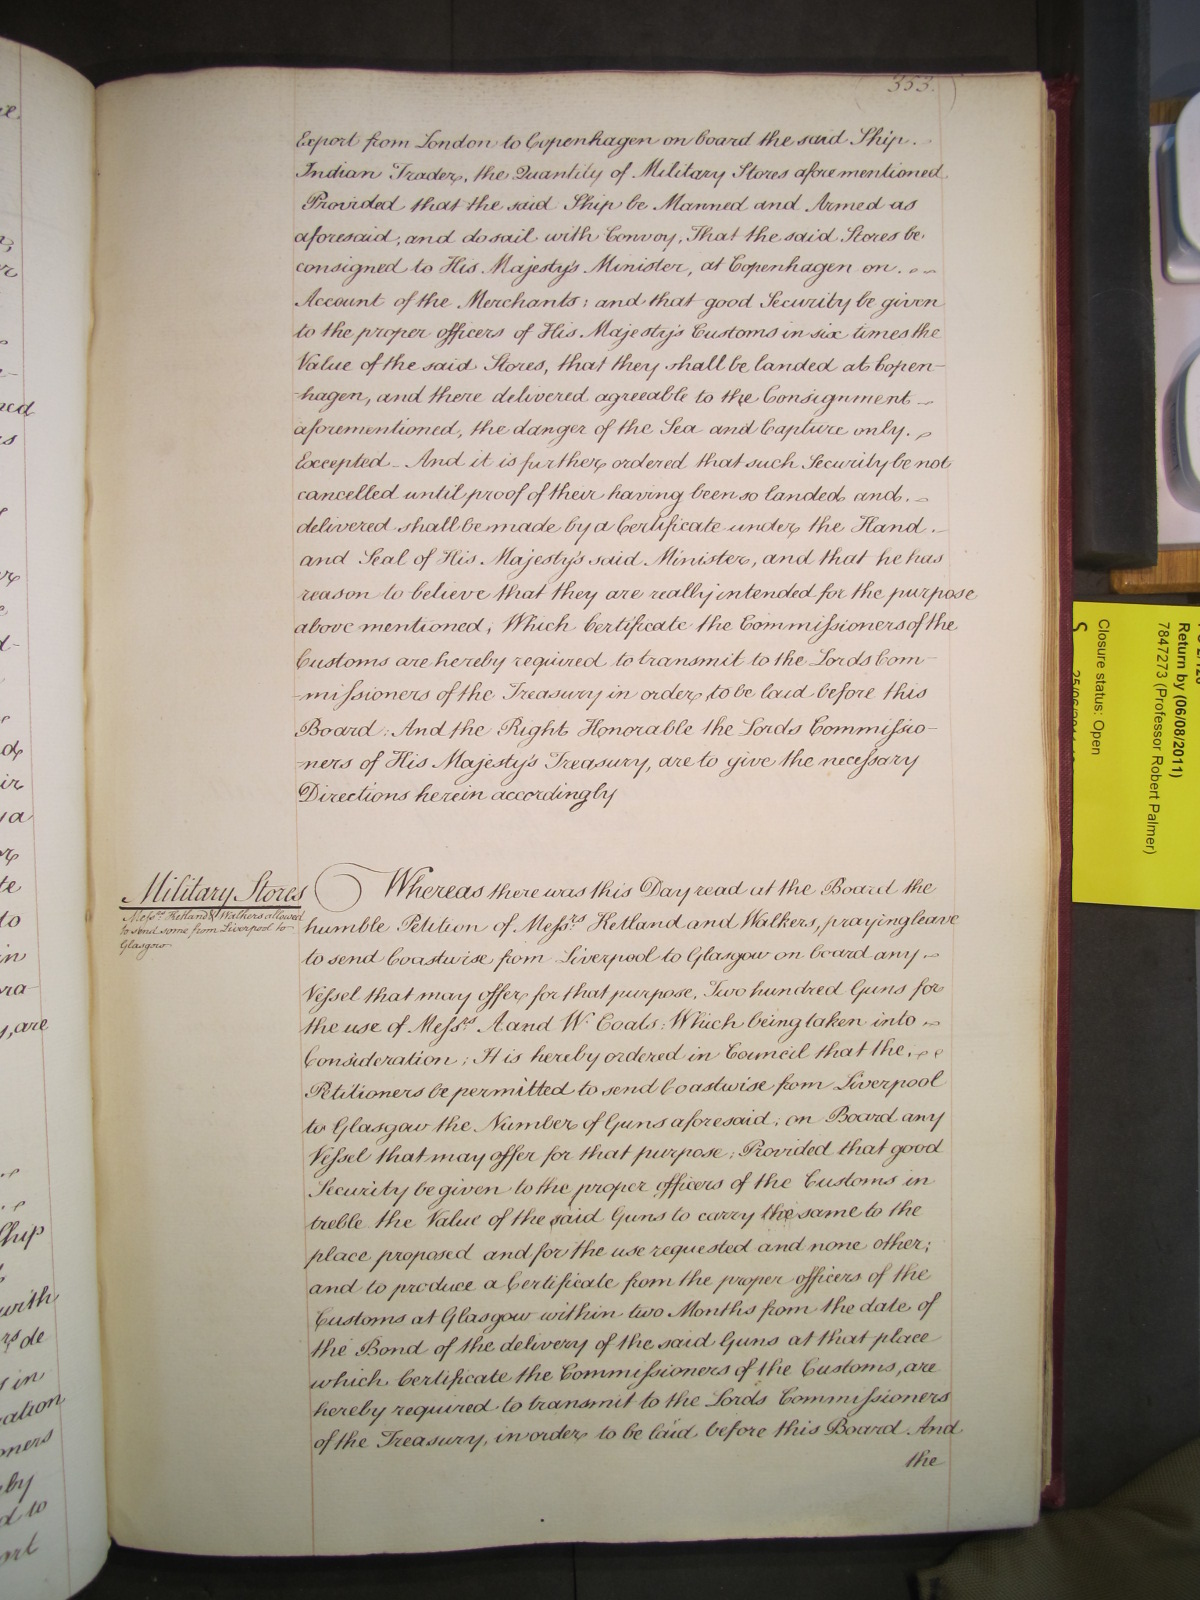 353.
Export from London to Copenhagen on board the said Ship.
Indian Trader, the Quantity of Military Stores aforementioned
Provided that the said Ship be Manned and Armed as
aforesaid, and do sail with Convoy, That the said Stores be
consigned to His Majesty's Minister, at Copenhagen on
Account of the Merchants; and that good Security be given
to the proper officers of His Majesty's Customs in six times the
Value of the said Stores, that they shall be landed at Copen-
-hagen, and there delivered agreeable to the Consignment
aforementioned, the danger of the Sea and Capture only.
Excepted - And it is further ordered that such Security be not
cancelled until proof of their having been so landed and
delivered shall be made by a Certificate under the Hand
and Seal of His Majesty's said Minister, and that he has
reason to believe that they are really intended for the purpose
above mentioned, Which Certificate the Commissioners of the
Customs are hereby required to transmit to the Lords Com-
-missioners of the Treasury in order to be laid before this
Board: And the Right Honorable the Lords Commissio-
-ners of His Majesty's Treasury, are to give the necessary
Directions herein accordingly
Military Stores
Messrs. Hetland & Walkers allowed
to send some from Liverpool to
Glasgow
Whereas there was this Day read at the Board the
humble Petition of Messrs. Hetland and Walkers, praying leave
to send Coastwise from Liverpool to Glasgow on board any
Vessel that may offer for that purpose, Two hundred Guns for
the use of Messrs A and W. Coats: Which being taken into
Consideration; It is hereby ordered in Council that the
Petitioners be permitted to send Coastwise from Liverpool
to Glasgow the Number of Guns aforesaid; on Board any
Vessel that may offer for that purpose; Provided that good
Security be given to the proper officers of the Customs in
treble the Value of the said Guns to carry the same to the
place proposed and for the use requested and none other;
and to produce a Certificate from the proper officers of the
Customs at Glasgow within two Months from the date of
the Bond of the delivery of the said Guns at that place
which Certificate the Commissioners of the Customs, are
hereby required to transmit to the Lords Commissioners
of the Treasury, in order to be laid before this Board. And
the
Return by (06/08/2011)
7847273 (Professor Robert Palmer)
Closure status: Open